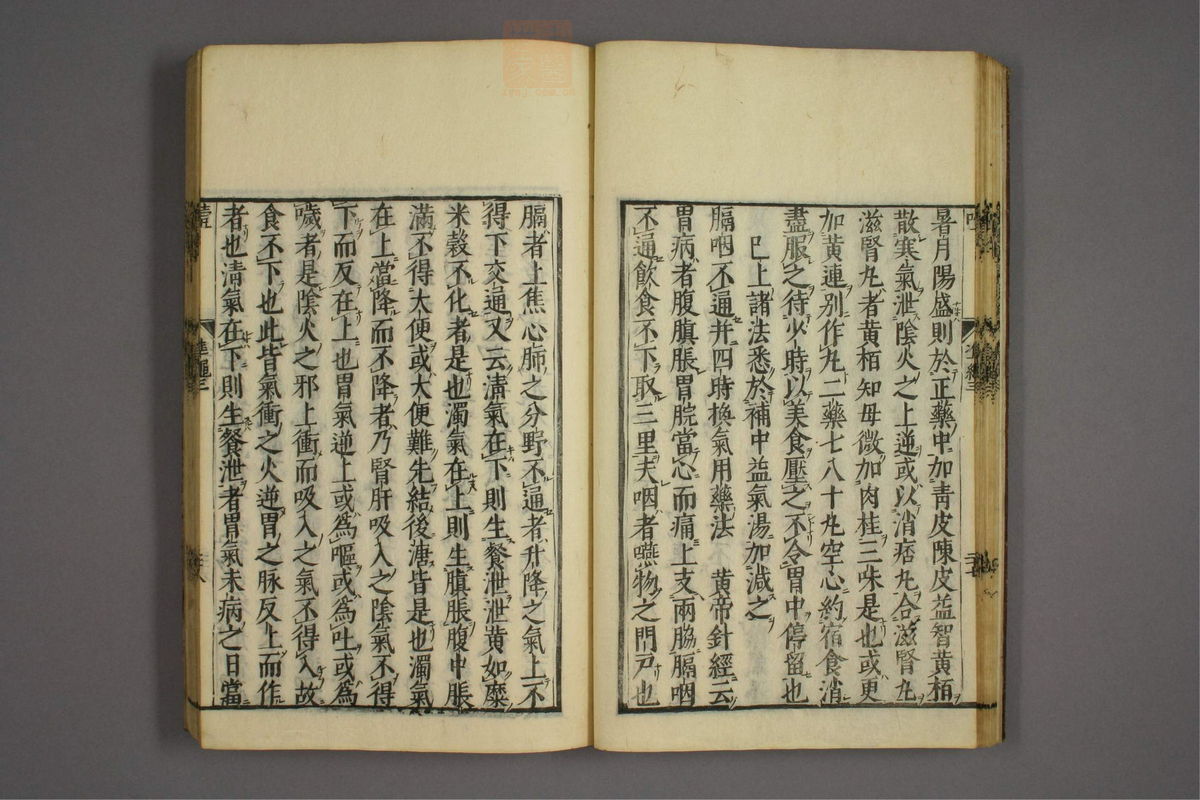 暑月陽盛則於正藥中加青皮陳皮益智黃栢
散寒氣泄陰火之上逆或以消痞丸合滋腎丸
滋腎丸者黃栢知母微加肉桂三味是也或更
加黃連別作丸二藥七八十丸空心約宿食消
盡服之待少時以美食壓之不令胃中停留也
已上諸法悉於補中益氣湯加減之
膈咽不通并四時換氣用藥法　黃帝針經云
胃病者腹䐜脹胃脘當心而痛上支兩脇膈咽
不通飲食不下取三里夫咽者嚥物之門戸也
膈者上焦心肺之分野不通者升降之氣上不
得下交通又云清氣在下則生餐泄泄黃如糜
米穀不化者是也濁氣在上則生䐜脹腹中脹
滿不得大便或大便難先結後溏皆是也濁氣
在上當降而不降者乃腎肝吸入之陰氣不得
下而反在上也胃氣逆上或爲嘔或爲吐或爲
噦者是陰火之邪上衝而吸入之氣不得入故
食不下也此皆氣衝之火逆胃之脉反上而作
者也清氣在下則生餐泄者胃氣未病之日當